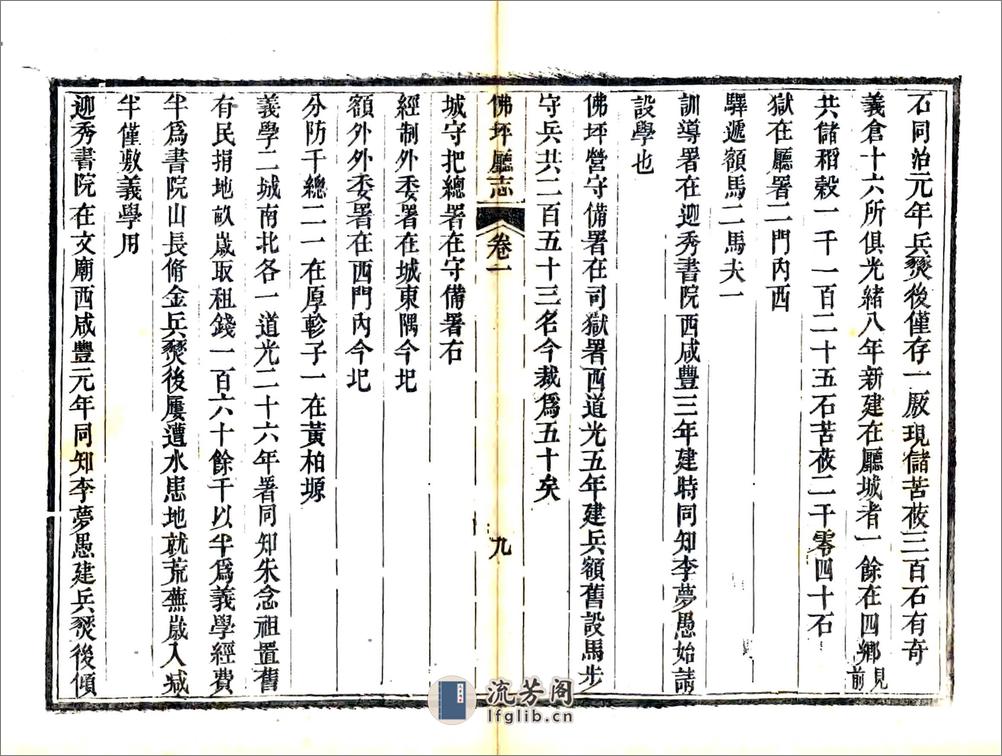 石同治元年兵燹後僅存一厫現儲苦莜三百石有奇
義倉十六所俱光緒八年新建在廳城者一餘在四鄉見前
共儲稻穀一千一百二十五石苦莜二千零四十石
獄在廳署二門內西
驛遞額馬二馬夫一
訓導署在迎秀書院西咸豐三年建時同知李夢愚始請
設學也
佛坪營守備署在司獄署西道光五年建兵額舊設馬步
守兵共二百五十三名今裁爲五十矣
佛坪廳志 卷一 九
城守把總署在守備署右
經制外委署在城東隅今圮
額外外委署在西門內今圮
分防千總二一在厚畛子一在黃柏塬
義學二城南北各一道光二十六年署同知朱念祖置舊
有民捐地畝歲取租錢一百六十餘千以半爲義學經費
半爲書院山長脩金兵燹後屢遭水患地就荒蕪歲入減
半僅敷義學用
迎秀書院在文廟西咸豐元年同知李夢愚建兵燹後傾
流芳阁
lfglib.cn